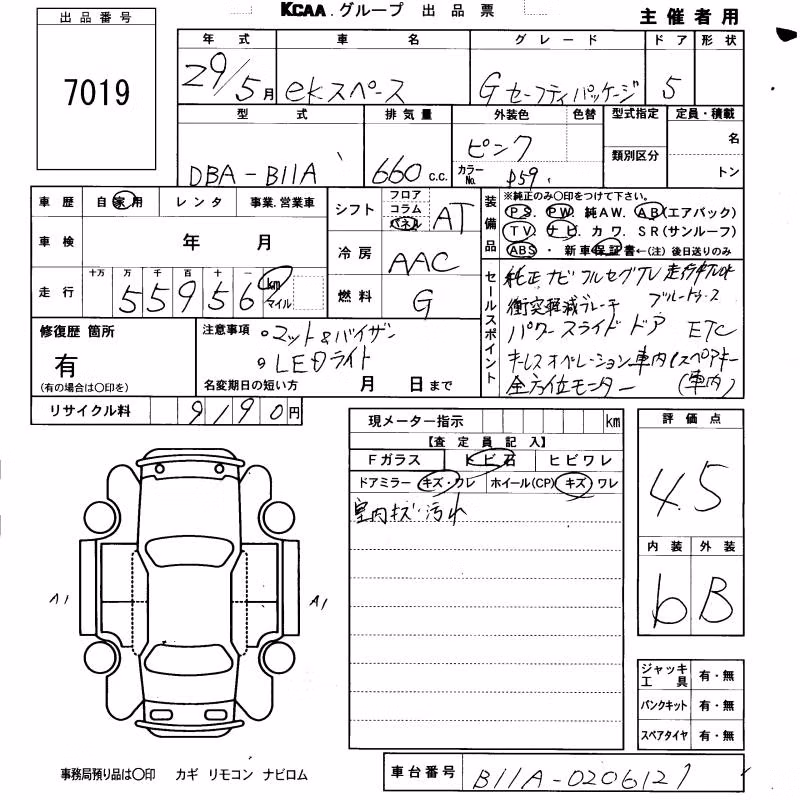 KCAA.グループ 出品票
主催者用
出品番号
7019
年式 車名 グレード ドア 形状
29/5月 ekスペース Gセーフティパッケージ 5
型式 排気量 外装色 色替 型式指定 定員・積載
DBA-B11A 660 c.c. ピンク 類別区分 名
カラーNo. P59 トン
車歴 自家用 レンタ 事業.営業車
シフト フロア コラム パネル AT
装備品 ※純正のみ〇印をつけて下さい。
PS. PW. 純AW. AB(エアバック)
TV. ナビ. カワ. SR(サンルーフ)
ABS・新車保証書←(注)後日送りのみ
車検 年 月
冷房 AAC
走行 十万 万 千 百 十 一
55956 km マイル
燃料 G
セールスポイント
純正ナビ フルセグTV
衝突軽減ブレーキ ブルートゥース
パワースライドドア ETC
キーレスオペレーション車内(スペアキー
全方位モニター (車内)
修復歴 箇所
有
(有の場合は〇印を)
注意事項 ・マット&バイザー
・LEDライト
名変期日の短い方 月 日まで
リサイクル料 9190円
現メーター指示 km
【査定員記入】
Fガラス トビ石 ヒビワレ
ドアミラー キズ・ワレ ホイール(CP) キズ ワレ
室内キズ・汚れ
評価点
4.5
内装 外装
b B
A1 A1
ジャッキ工具 有・無
パンクキット 有・無
スペアタイヤ 有・無
事務局預り品は〇印 カギ リモコン ナビロム
車台番号 B11A-0206127